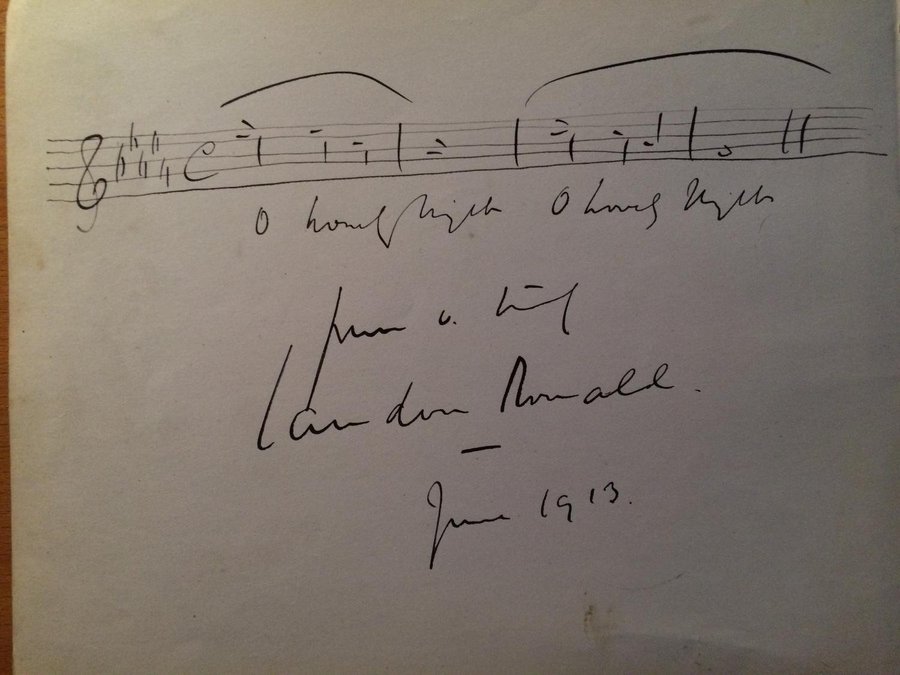 O Lovely Night O Lovely Night
Landon Ronald.
June 1913.